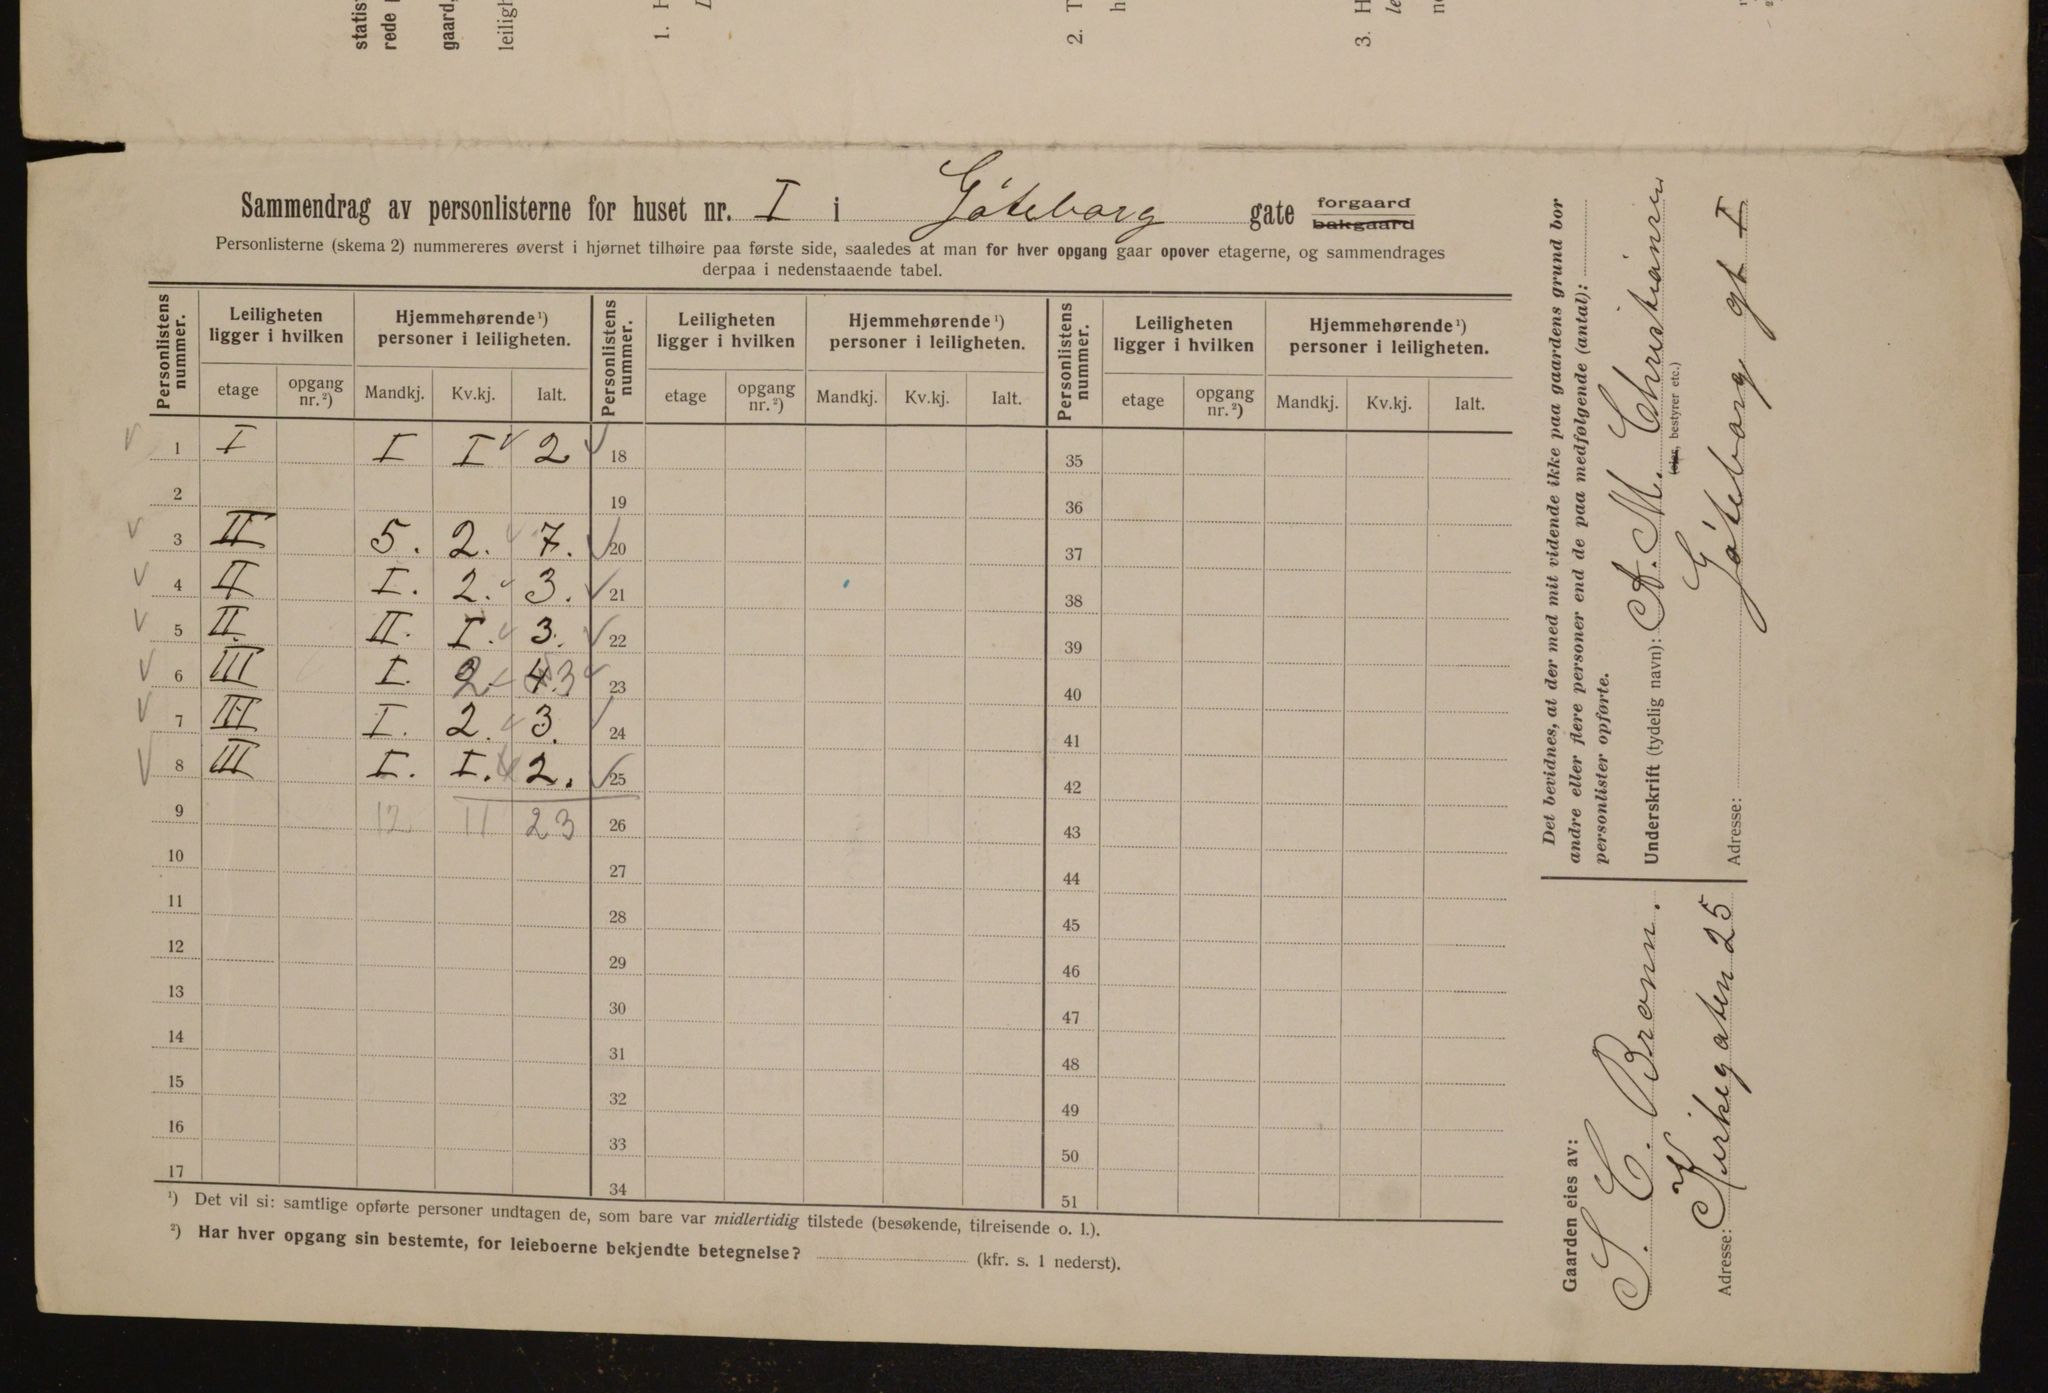 statis
rede
gaard,
leiligh
1. H
L
2. T
h
3. H
le
n
Sammendrag av personlisterne for huset nr. I i Göteborg gate forgaard
bakgaard
Personlisterne (skema 2) nummereres øverst i hjørnet tilhøire paa første side, saaledes at man for hver opgang gaar opover etagerne, og sammendrages
derpaa i nedenstaaende tabel.
Personlistens nummer. Leiligheten ligger i hvilken Hjemmehørende¹) personer i leiligheten. Personlistens nummer. Leiligheten ligger i hvilken Hjemmehørende¹) personer i leiligheten. Personlistens nummer. Leiligheten ligger i hvilken Hjemmehørende¹) personer i leiligheten.
etage opgang nr.²) Mandkj. Kv.kj. Ialt. etage opgang nr.²) Mandkj. Kv.kj. Ialt. etage opgang nr.²) Mandkj. Kv.kj. Ialt.
1 I I I 2 18 35
2 19 36
3 II 5. 2. 7. 20 37
4 II I. 2. 3. 21 38
5 II. II. I. 3. 22 39
6 III I. 2. 4. 3 23 40
7 III I. 2. 3. 24 41
8 III I. I. 2. 25 42
9 12 11 23 26 43
10 27 44
11 28 45
12 29 46
13 30 47
14 31 48
15 32 49
16 33 50
17 34 51
¹) Det vil si: samtlige opførte personer undtagen de, som bare var midlertidig tilstede (besøkende, tilreisende o. l.).
²) Har hver opgang sin bestemte, for leieboerne bekjendte betegnelse? (kfr. s. 1 nederst).
Det bevidnes, at der med mit vidende ikke paa gaardens grund bor
andre eller flere personer end de paa medfølgende (antal):
personlister opførte.
Underskrift (tydelig navn): A. M. Christiansen
(eier, bestyrer etc.)
Göteborg gt I
Adresse:
Gaarden eies av:
S. C. Brønn.
Adresse: Kirkegaten 25